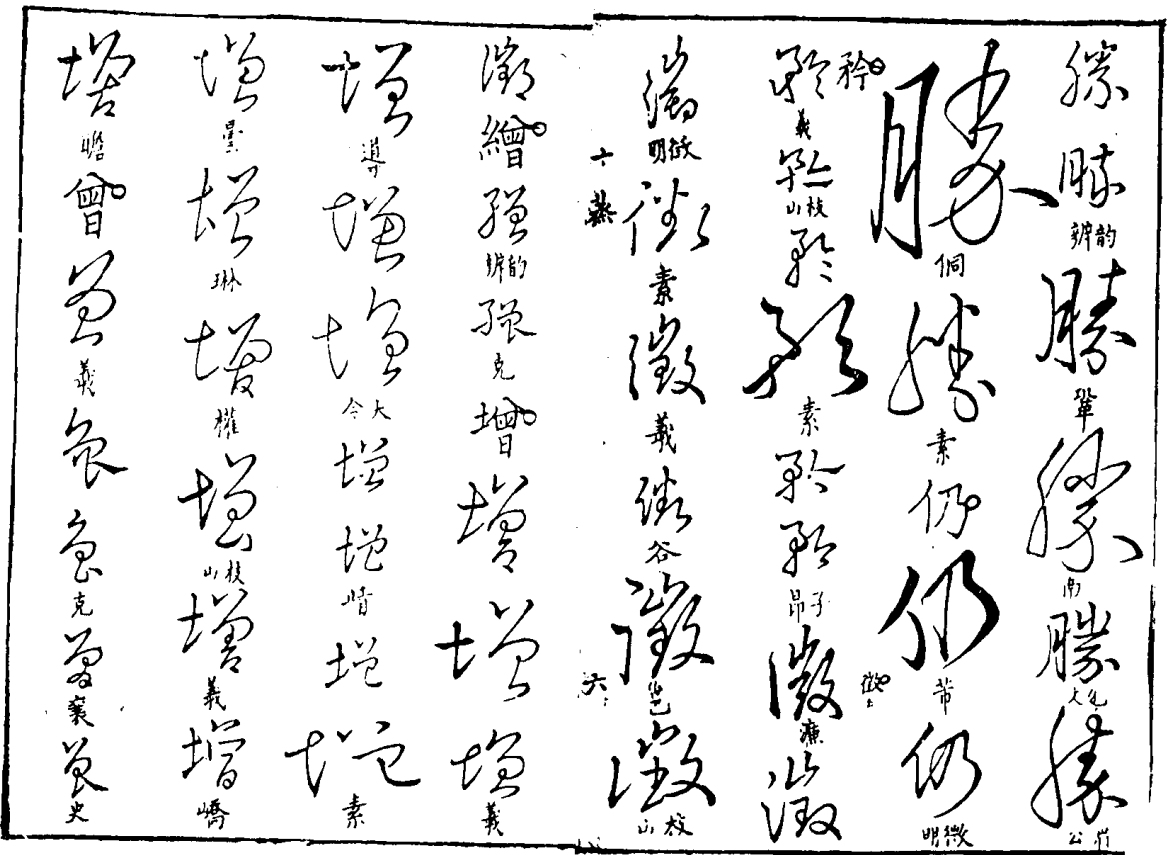 勝 勝 辨韵 勝 鞏 勝 南 勝 勝
勝 侗 勝 素 仍 仍 芾 仍 明徵
矜 矜 義 矜 山枝 矜 矜 素 矜 矜 昂子 徵 徵 廉 徵
徵 明徵 徵 素 徵 羲 徵 谷 徵 邕 徵 山枝
六 蒸
六
徵 繒 繒 辨韵 繒 克 增 增 增 增 羲
增 導 增 增 令大 增 增 崝 增 增 素
增 曇 增 琳 增 權 增 山枝 增 羲 增 嶠
增 瞻 曾 曾 羲 曾 曾 克 曾 襄 曾 史